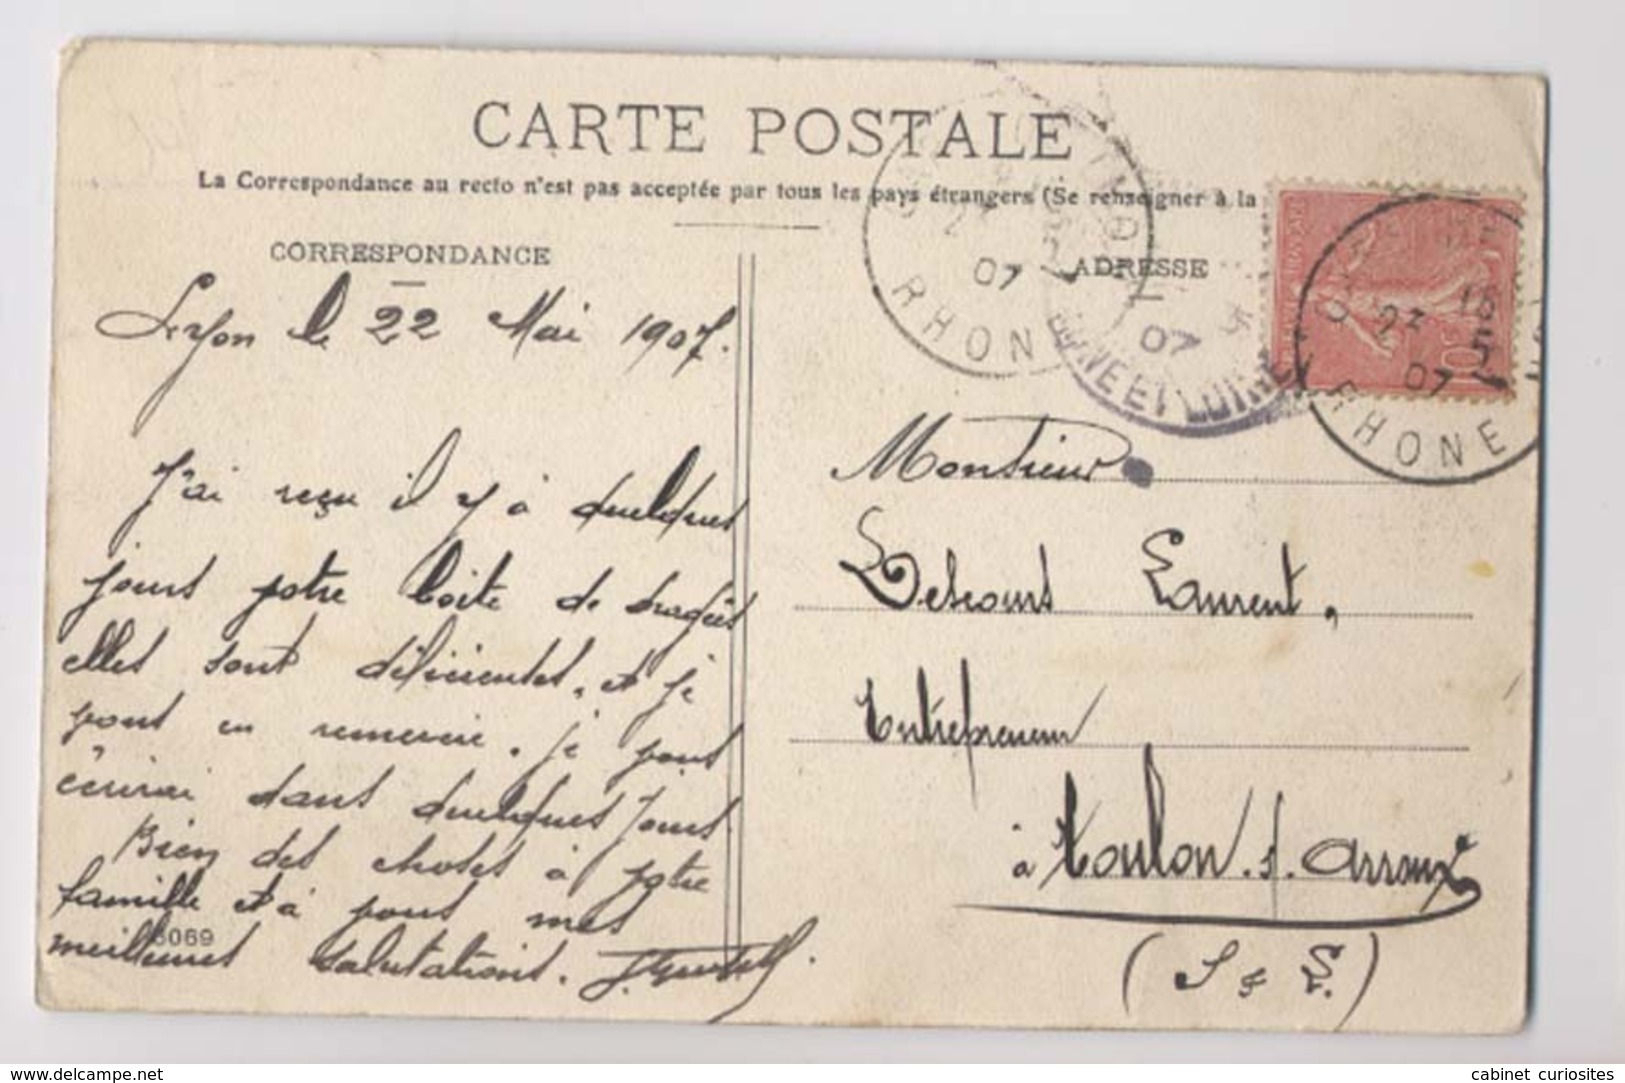 CARTE POSTALE
La Correspondance au recto n'est pas acceptée par tous les pays étrangers (Se renseigner à la
CORRESPONDANCE
Lyon le 22 Mai 1907.
J'ai reçu il y à quelques
jours votre boite de dragées
elles sont délicientes, et je
vous en remercie. je vous
écrirai dans quelques jours.
Bien des choses à votre
famille et à vous mes
meilleures salutations.
6069
ADRESSE
RHONE
07
SAONE ET LOIRE
07
10
23 15
5
07
RHONE
Monsieur
Descours Laurent,
Entrepreneur
à Toulon. s. Arroux
(S & L.)
www.delcampe.net
cabinet curiosites